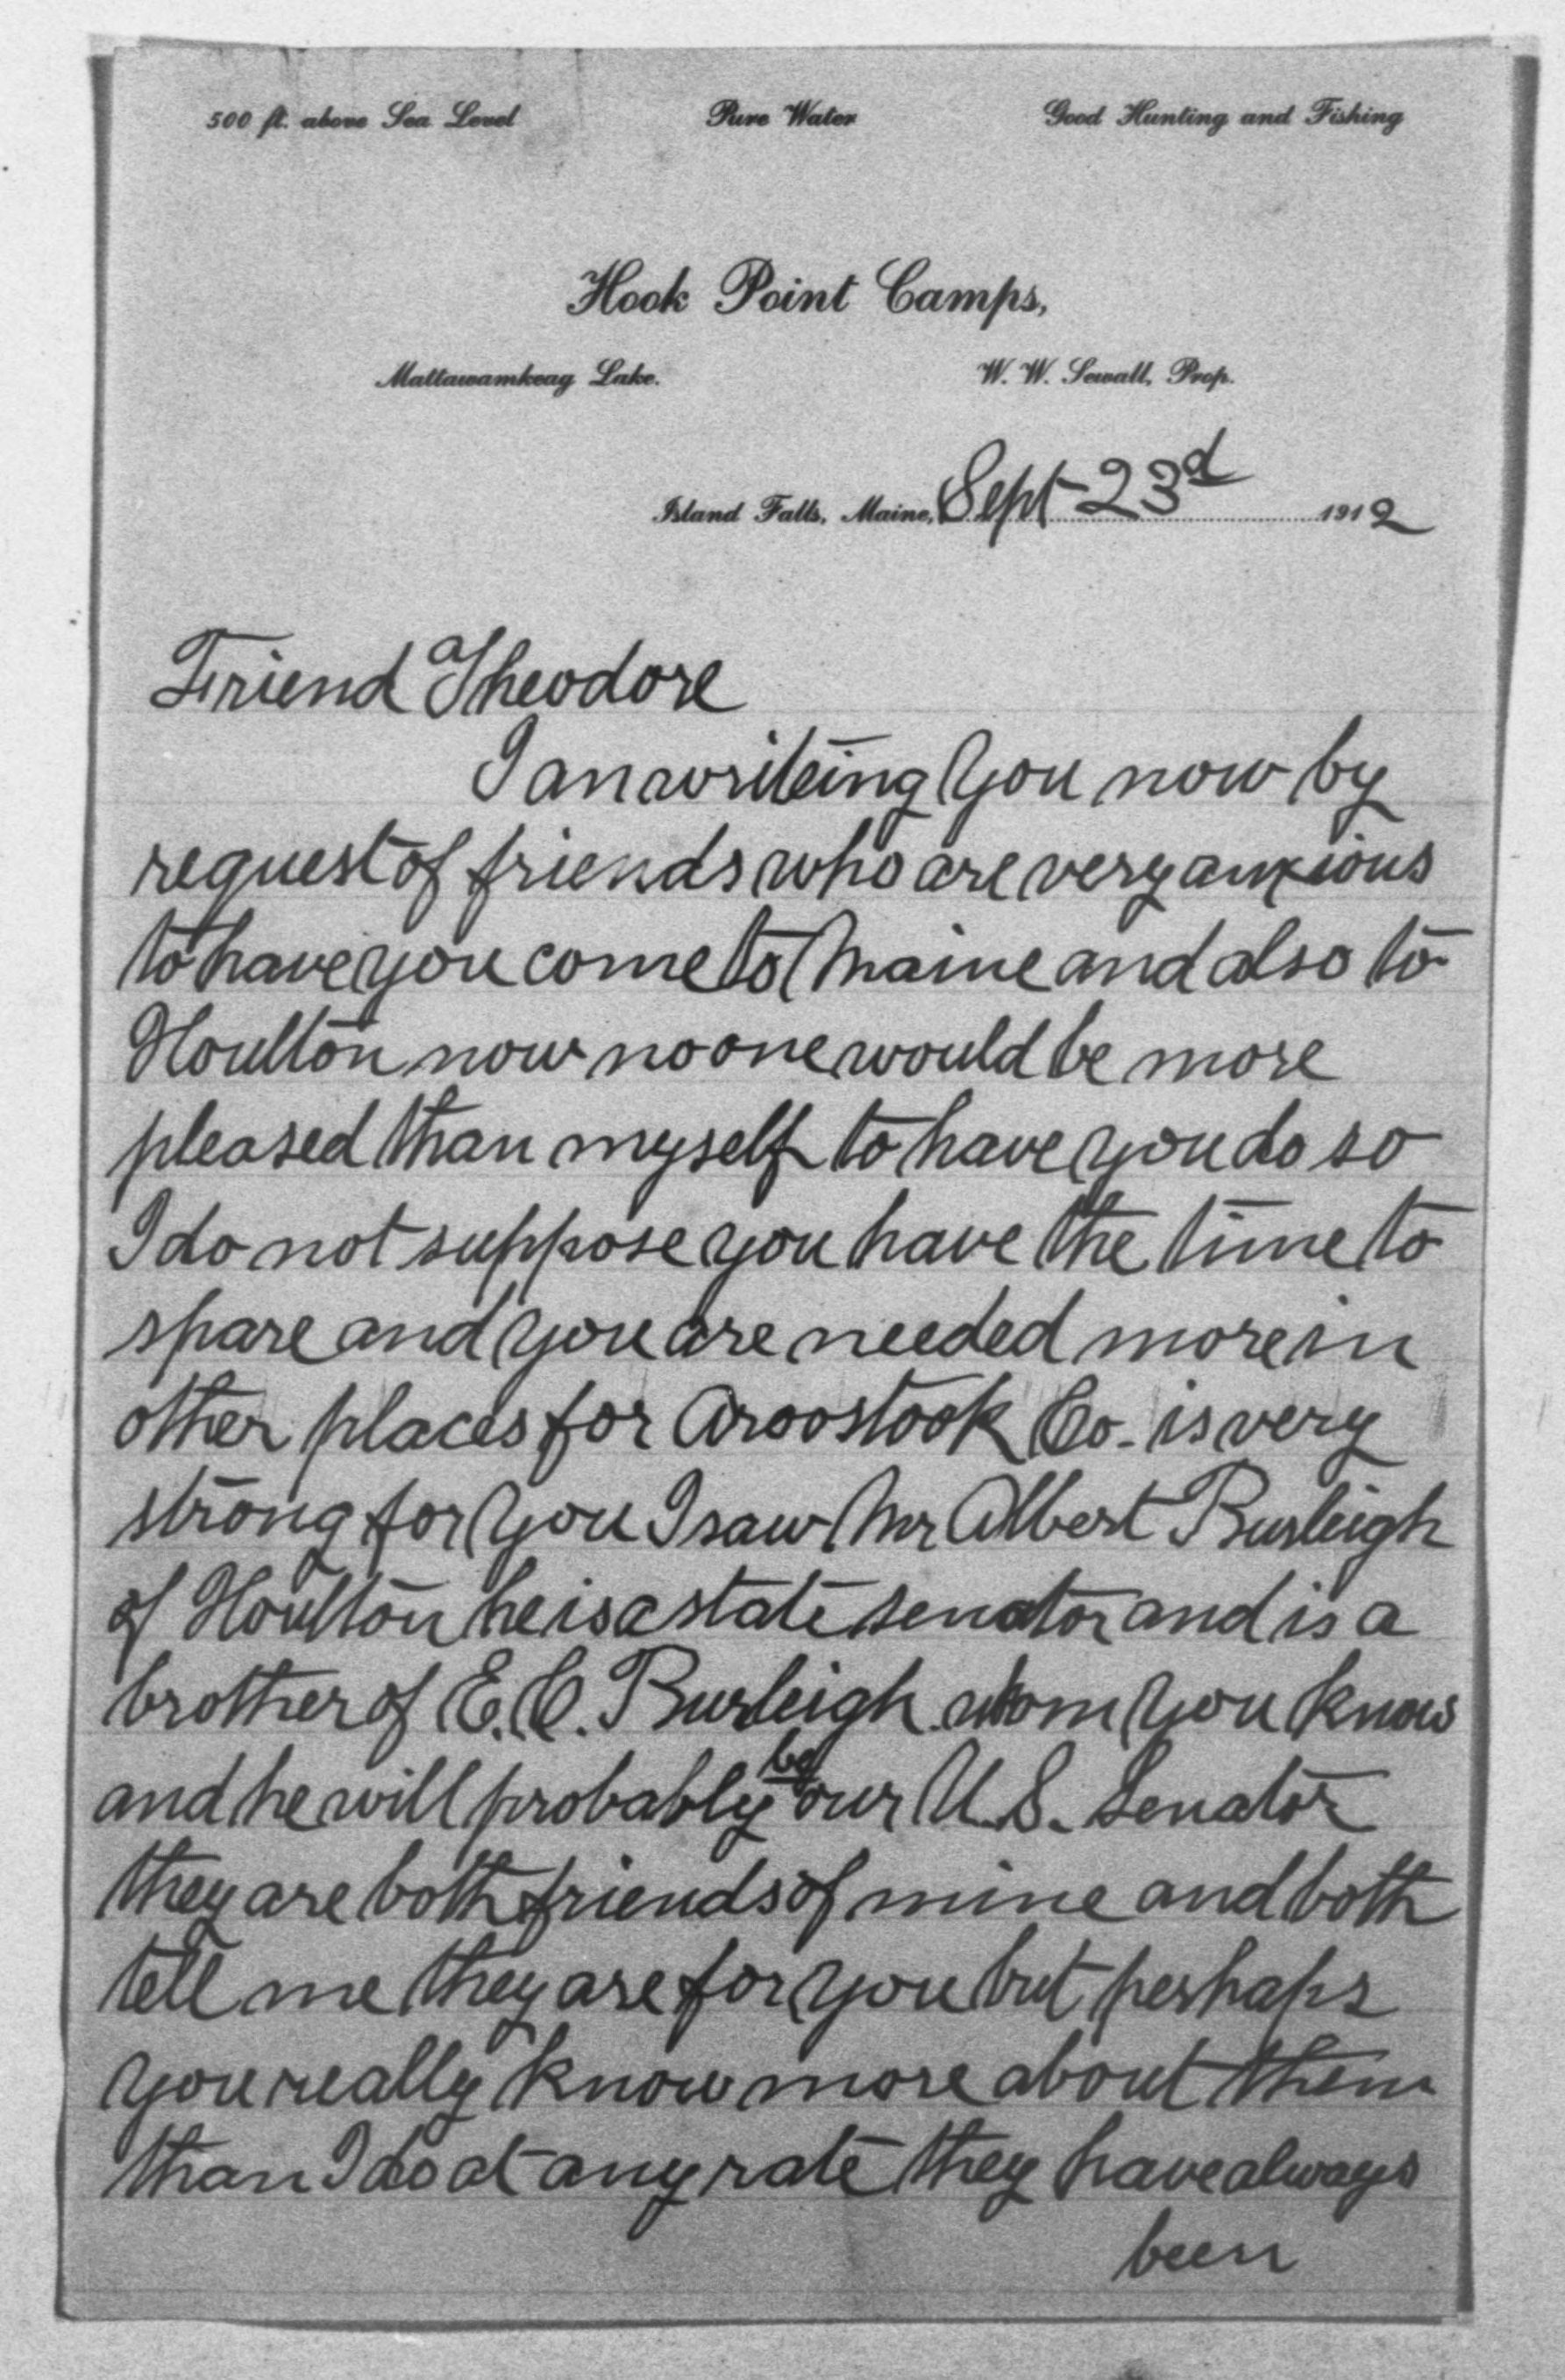 500 ft. above Sea Level Pure Water Good Hunting and Fishing
Hook Point Camps,
Mattawamkeag Lake. W. W. Sewall, Prop.
Island Falls, Maine, Sept 23d 1912
Friend Theodore
I an writeing you now by
request of friends who are very anxious
to have you come to Maine and also to
Houlton now no one would be more
pleased than myself to have you do so
I do not suppose you have the time to
spare and you are needed more in
other places for Aroostook Co. is very
strong for you I saw Mr Albert Burleigh
of Houlton he is a state senator and is a
brother of E. C. Burleigh whom you know
and he will probably be our U.S. Senator
they are both friends of mine and both
tell me they are for you but perhaps
you really know more about them
than I do at any rate they have always
been